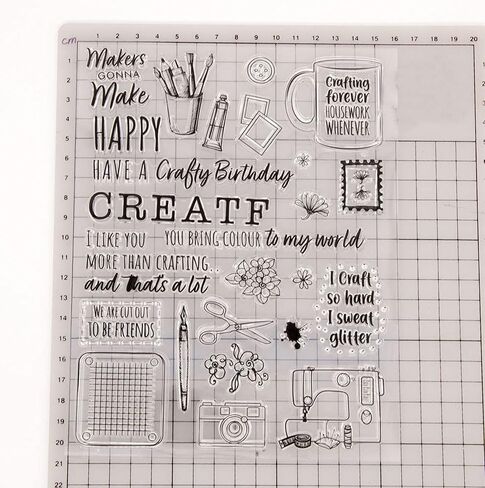 cm
1 2 3 4 5 6 7 8 9 10 11 12 13 14 15 16 17 18 19 20
Makers
GONNA
Make
HAPPY
HAVE A Crafty Birthday
CREATF
I LIKE YOU
MORE THAN CRAFTING...
and that's a lot
YOU BRING COLOUR to my world
Crafting
forever
HOUSEWORK
WHENEVER
WE ARE CUT OUT
TO BE FRIENDS
I Craft
so hard
I sweat
glitter
1
2
3
4
5
6
7
8
9
10
11
12
13
14
15
16
17
18
19
20
21
22